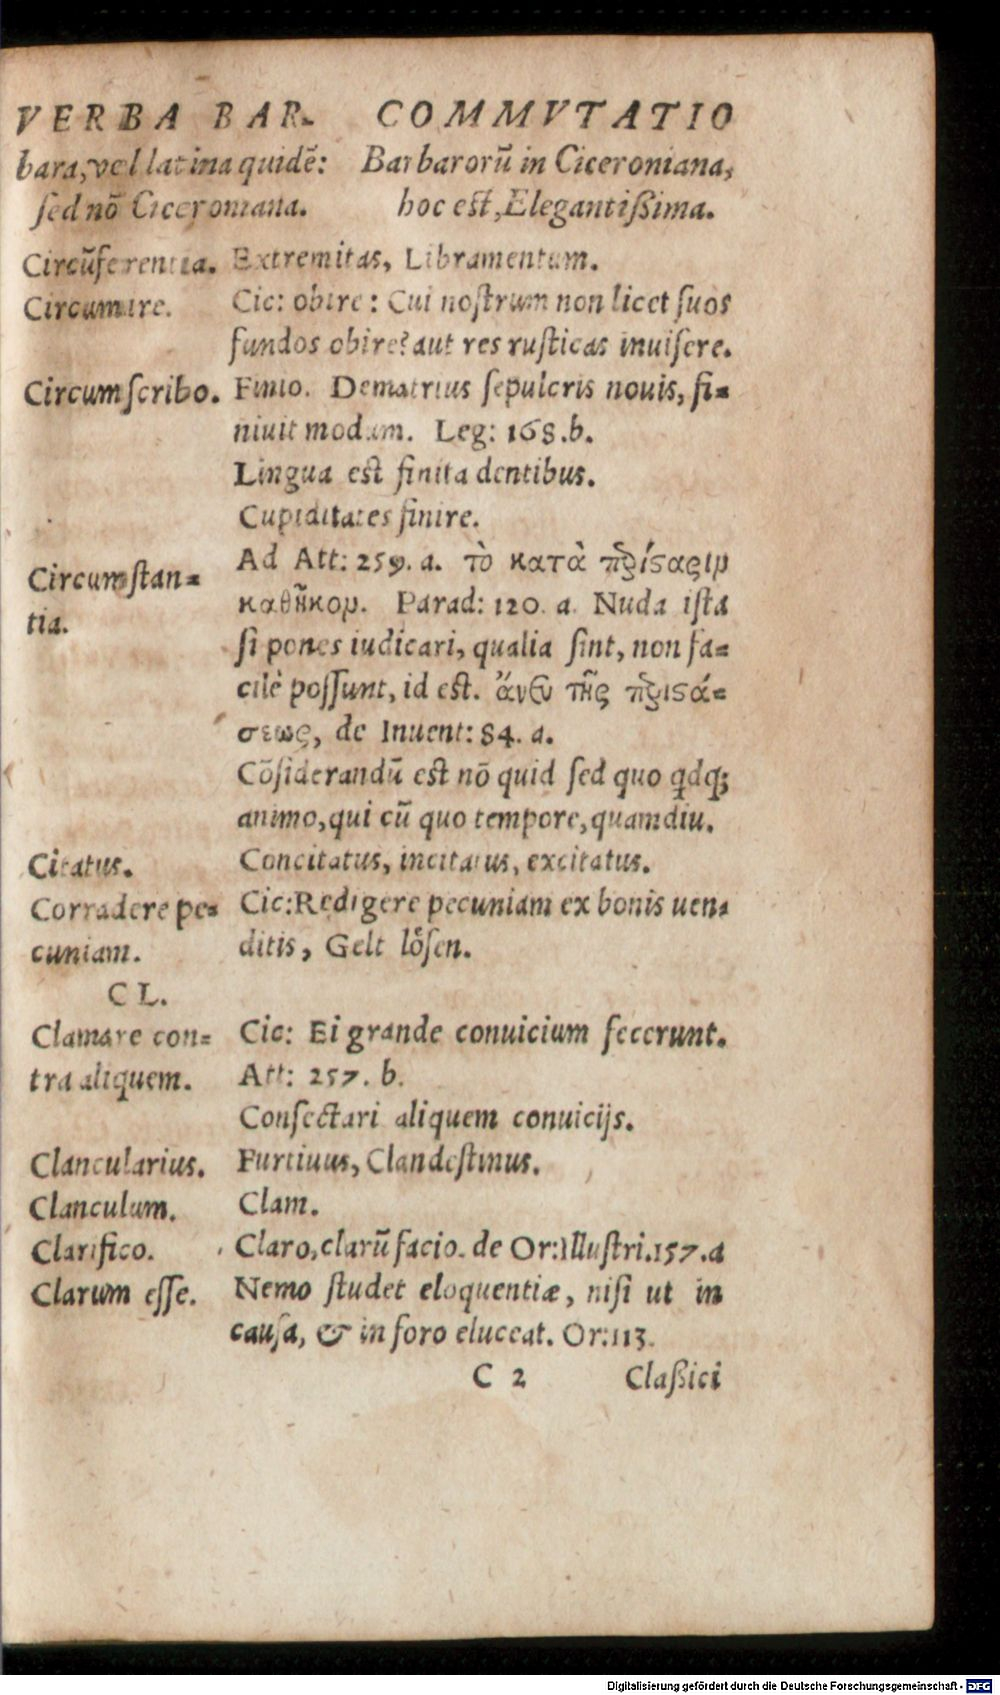 VERBA BAR- COMMVTATIO
bara, vel latina quidē: Barbarorū in Ciceroniana,
sed nō Ciceroniana. hoc est, Elegantißima.
Circūferentia. Extremitas, Libramentum.
Circumire. Cic: obire: Cui nostrum non licet suos
fundos obire? aut res rusticas inuisere.
Circumscribo. Finio. Demetrius sepulcris nouis, fi-
niuit modum. Leg: 168.b.
Lingua est finita dentibus.
Cupiditates finire.
Ad Att: 259. a. τὸ κατὰ πϖρίςασιν
Circumstan-
καθῆκον. Parad: 120. a. Nuda ista
tia.
si pones iudicari, qualia sint, non fa-
cilè possunt, id est. ἄνευ τῆς πϖριςά-
σεως, de Inuent: 84. a.
Cōsiderandū est nō quid sed quo qdq;
animo, qui cū quo tempore, quamdiu.
Citatus. Concitatus, incitatus, excitatus.
Corradere pe- Cic: Redigere pecuniam ex bonis uen-
cuniam. ditis, Gelt lösen.
C L.
Clamare con- Cic: Ei grande conuicium fecerunt.
tra aliquem. Att: 257. b.
Consectari aliquem conuicijs.
Clancularius. Furtiuus, Clandestinus.
Clanculum. Clam.
Clarifico. Claro, clarū facio. de Or: Illustri. 157. a
Clarum esse. Nemo studet eloquentiæ, nisi ut in
causa, & in foro eluceat. Or: 113.
C 2 Claßici
Digitalisierung gefördert durch die Deutsche Forschungsgemeinschaft - DFG